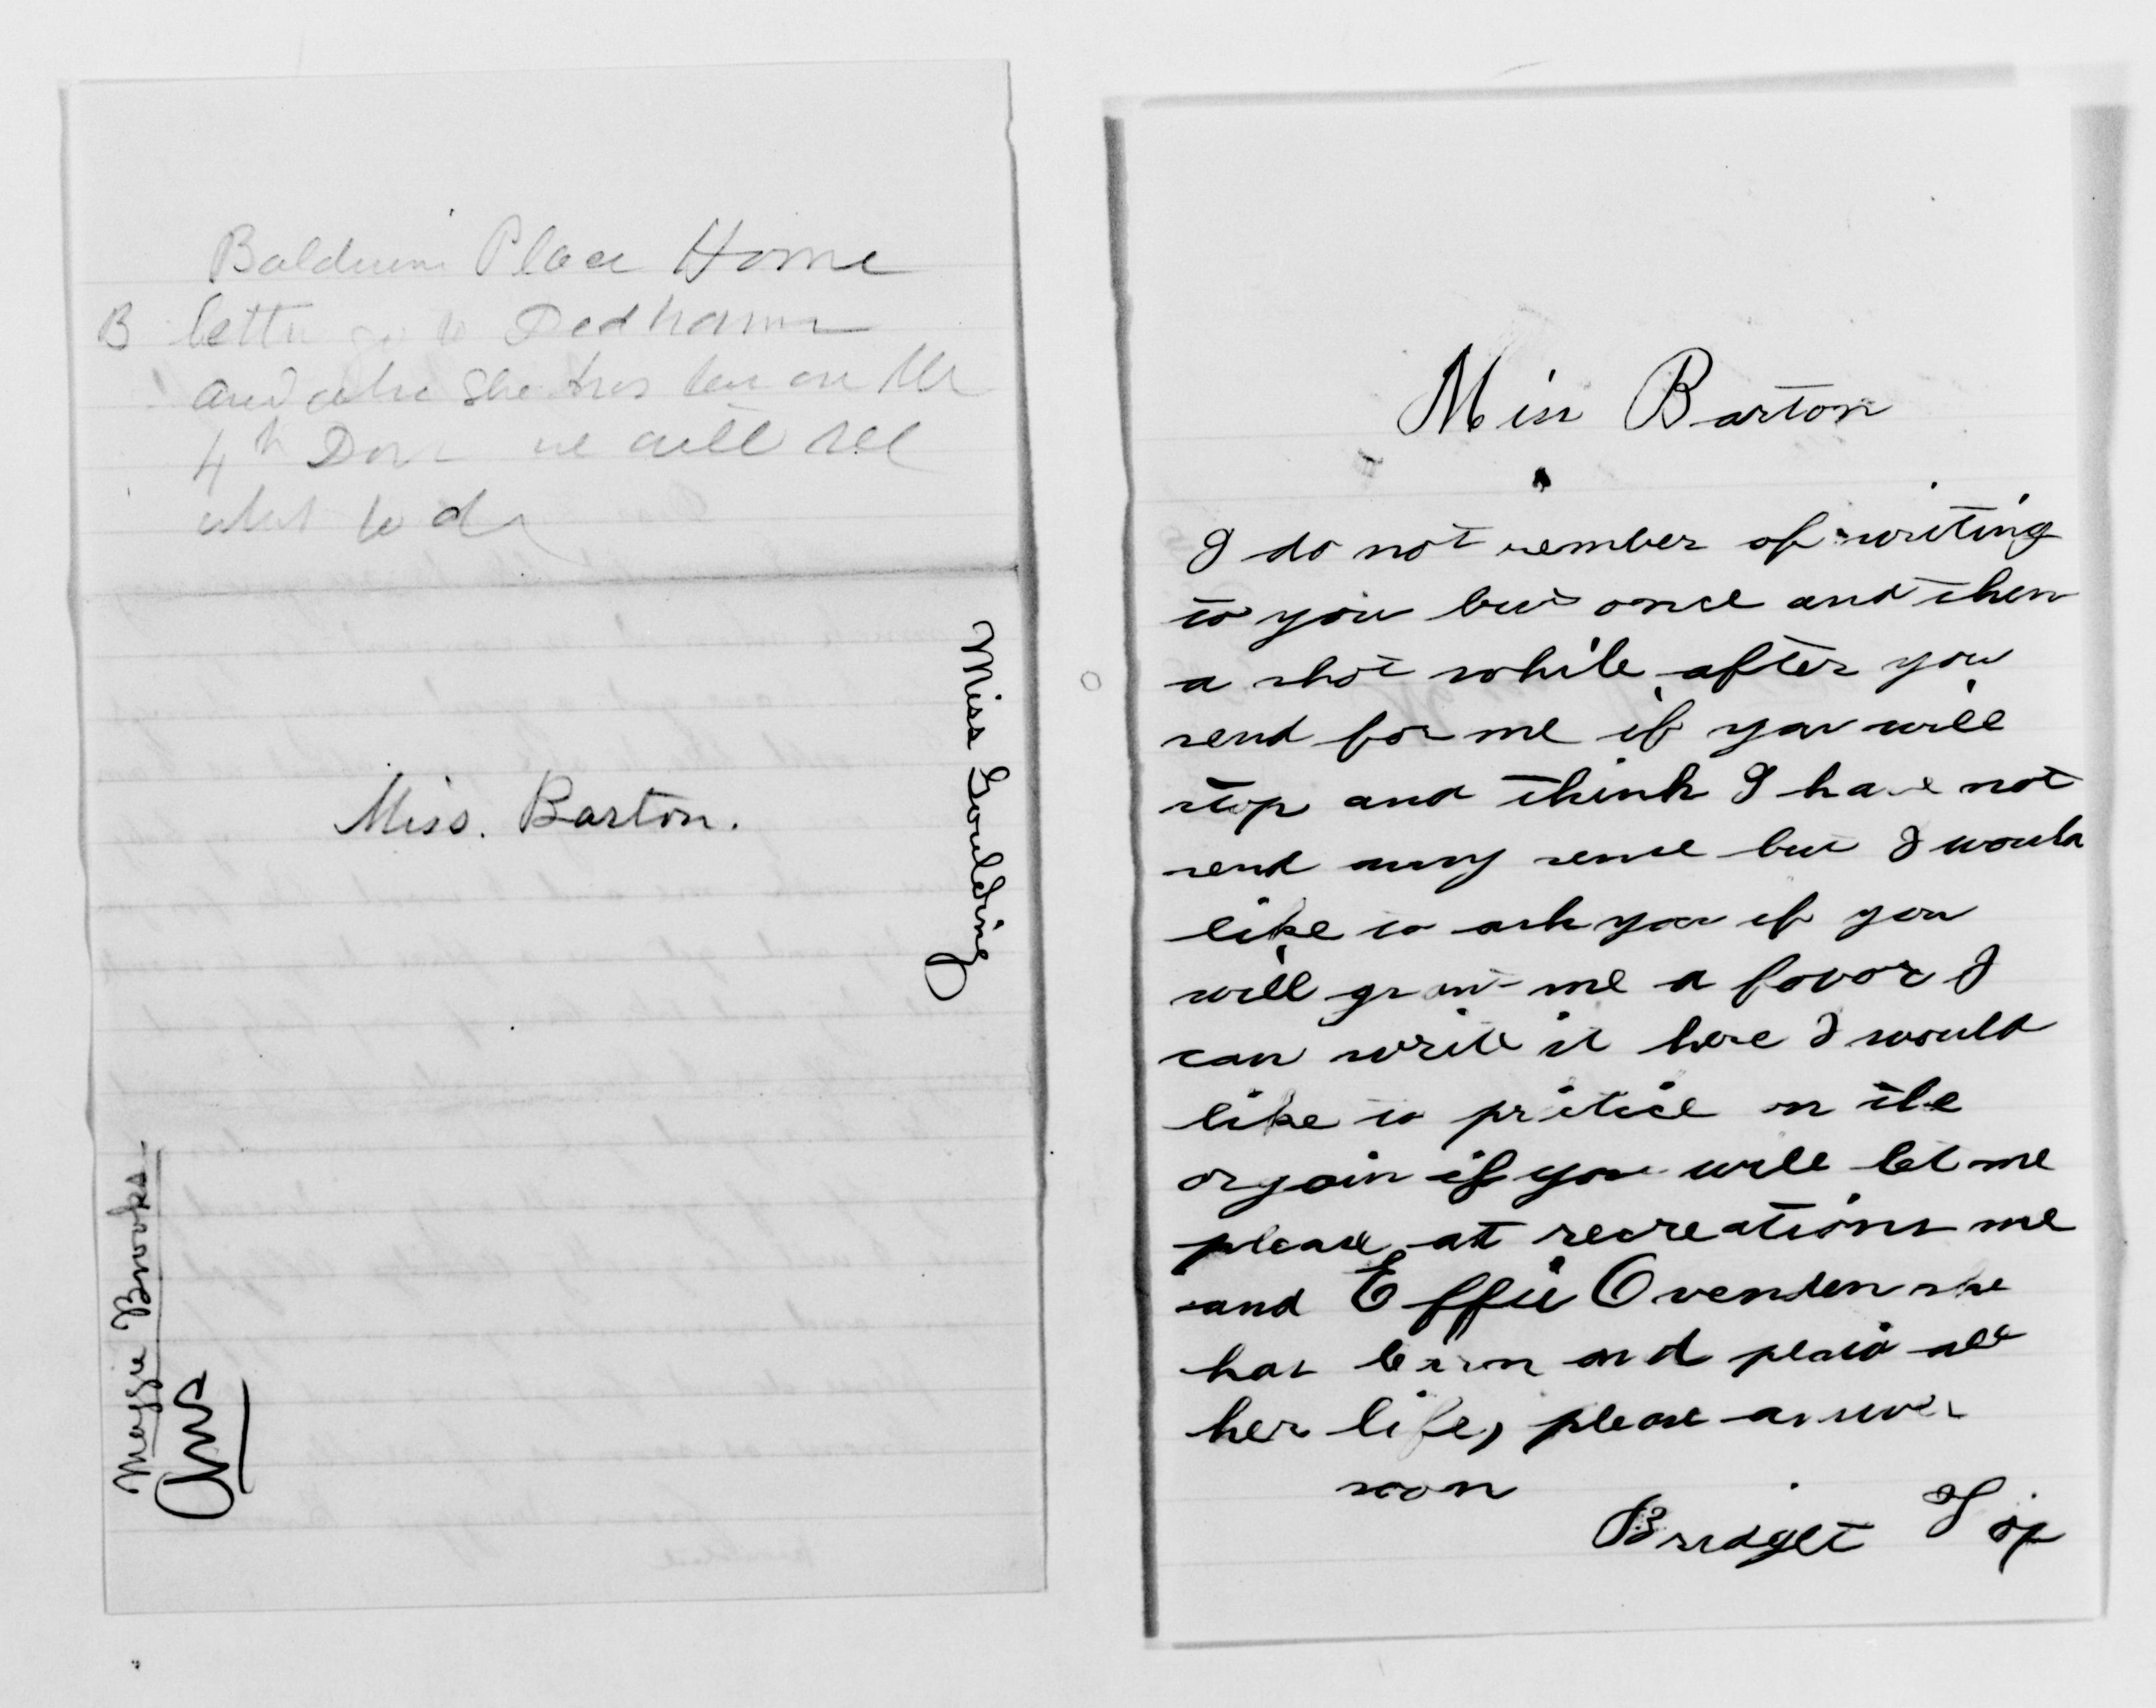 Baldwin Place Home
B better go to Dedham
and when she has been on the
4th Door we will see
what to do
Miss. Barton.
Miss Goulding
Maggie Brooks
Ans
Miss Barton
I do not rember of writing
to you but once and then
a shot while after you
send for me if you will
stop and think I have not
send anny sence but I would
like to ask you if you
will grant me a favor I
can write it here I would
like to pritice on the
orgain if you will let me
please at recreations me
and Effie Ovenden she
has learn and plaid all
her life, please answer
soon
Bridget